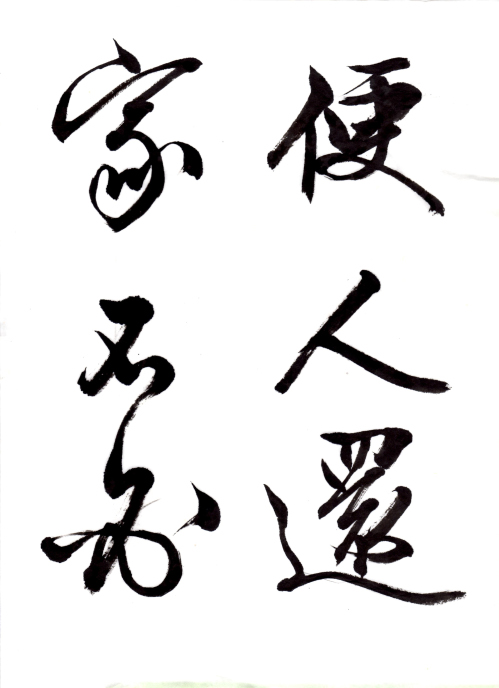 便人還
家不